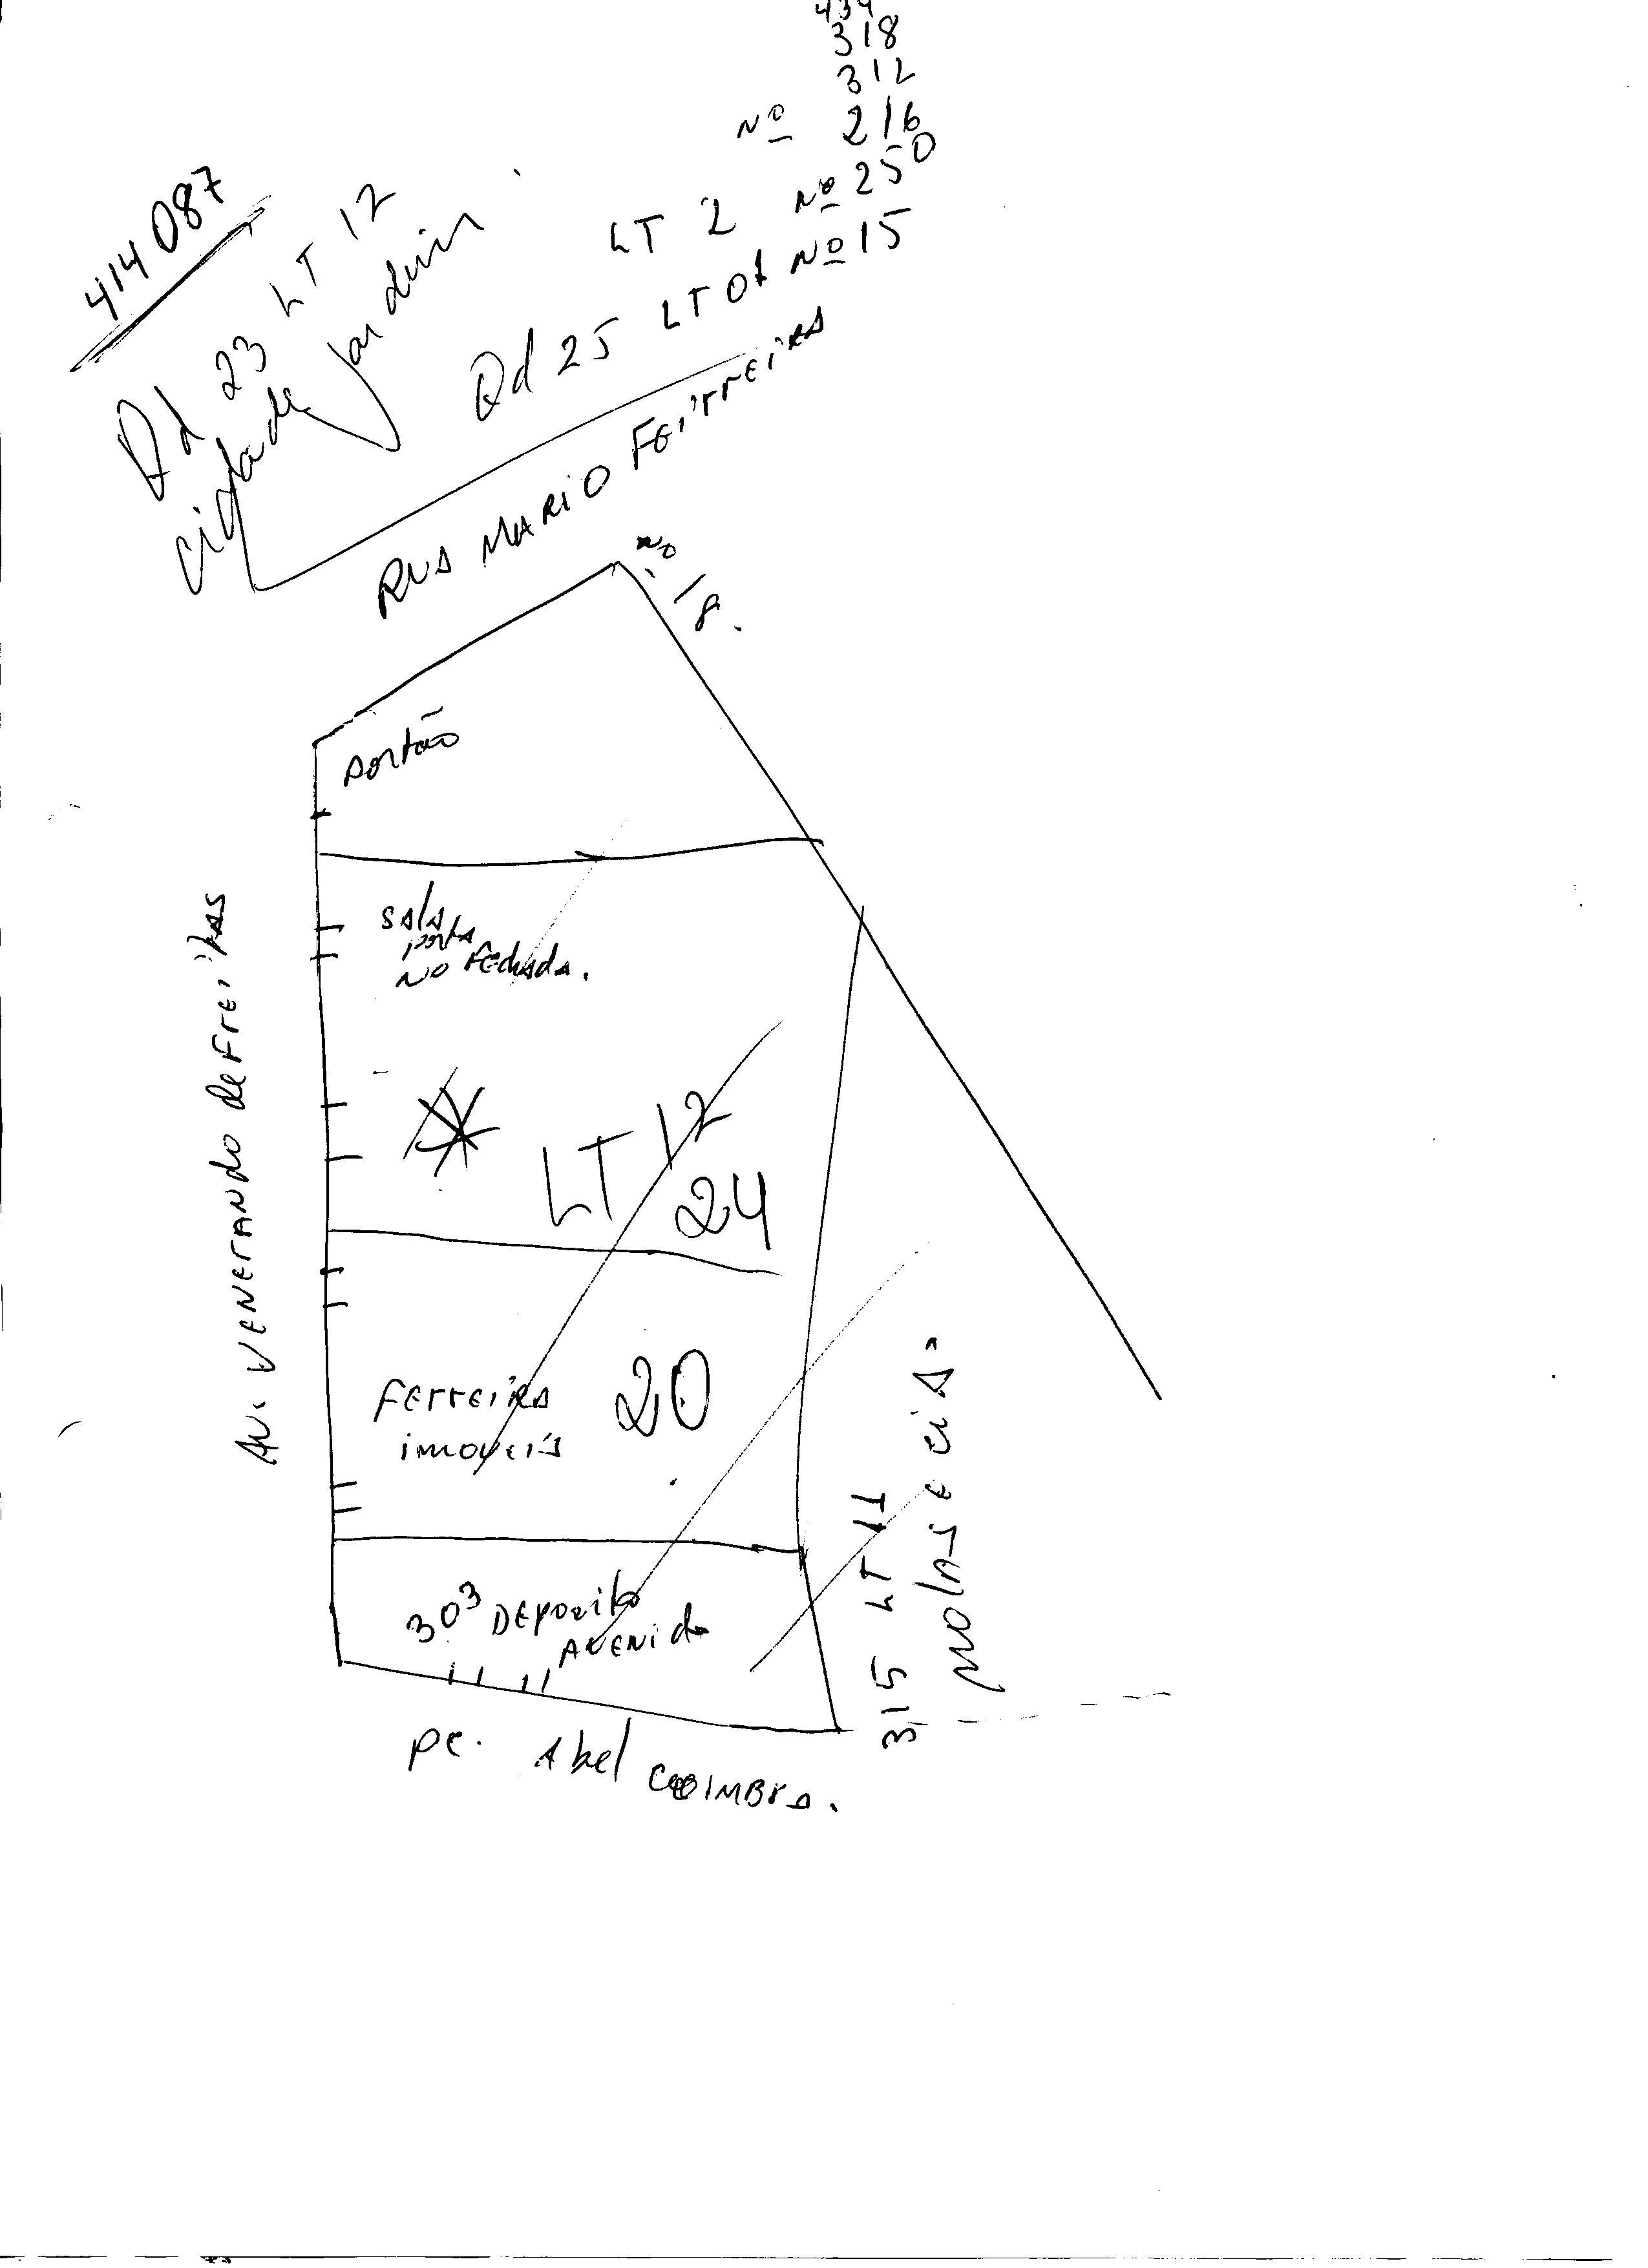 434
318
312
Nº 216
LT 2 Nº 250
Qd 25 LT 01 Nº 15
414087
Qd 23 LT 12
cidade jardim
RUA MARIO FEIRREIRA
Nº 18.
portão
sala
porta
NO FechadA.
LT 12
24
Ferreira 20
imoveis
303 DEposito
AVENida
AV. VENERANDO de Freitas
315 LT 11
molas e ciA.
pç. Abel COIMBrA.